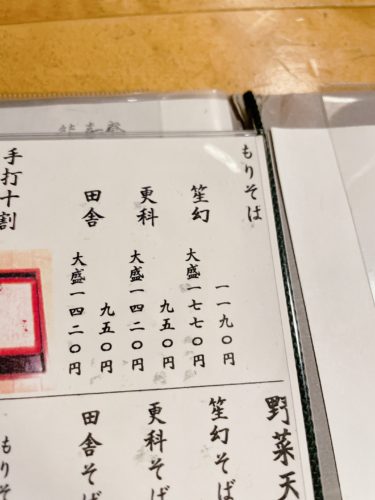 もりそば
笙幻
一一九〇円
大盛一七七〇円
更科
九五〇円
大盛一四二〇円
田舎
九五〇円
大盛一四二〇円
手打十割
野菜天
笙幻そば
更科そば
田舎そば
もりそ